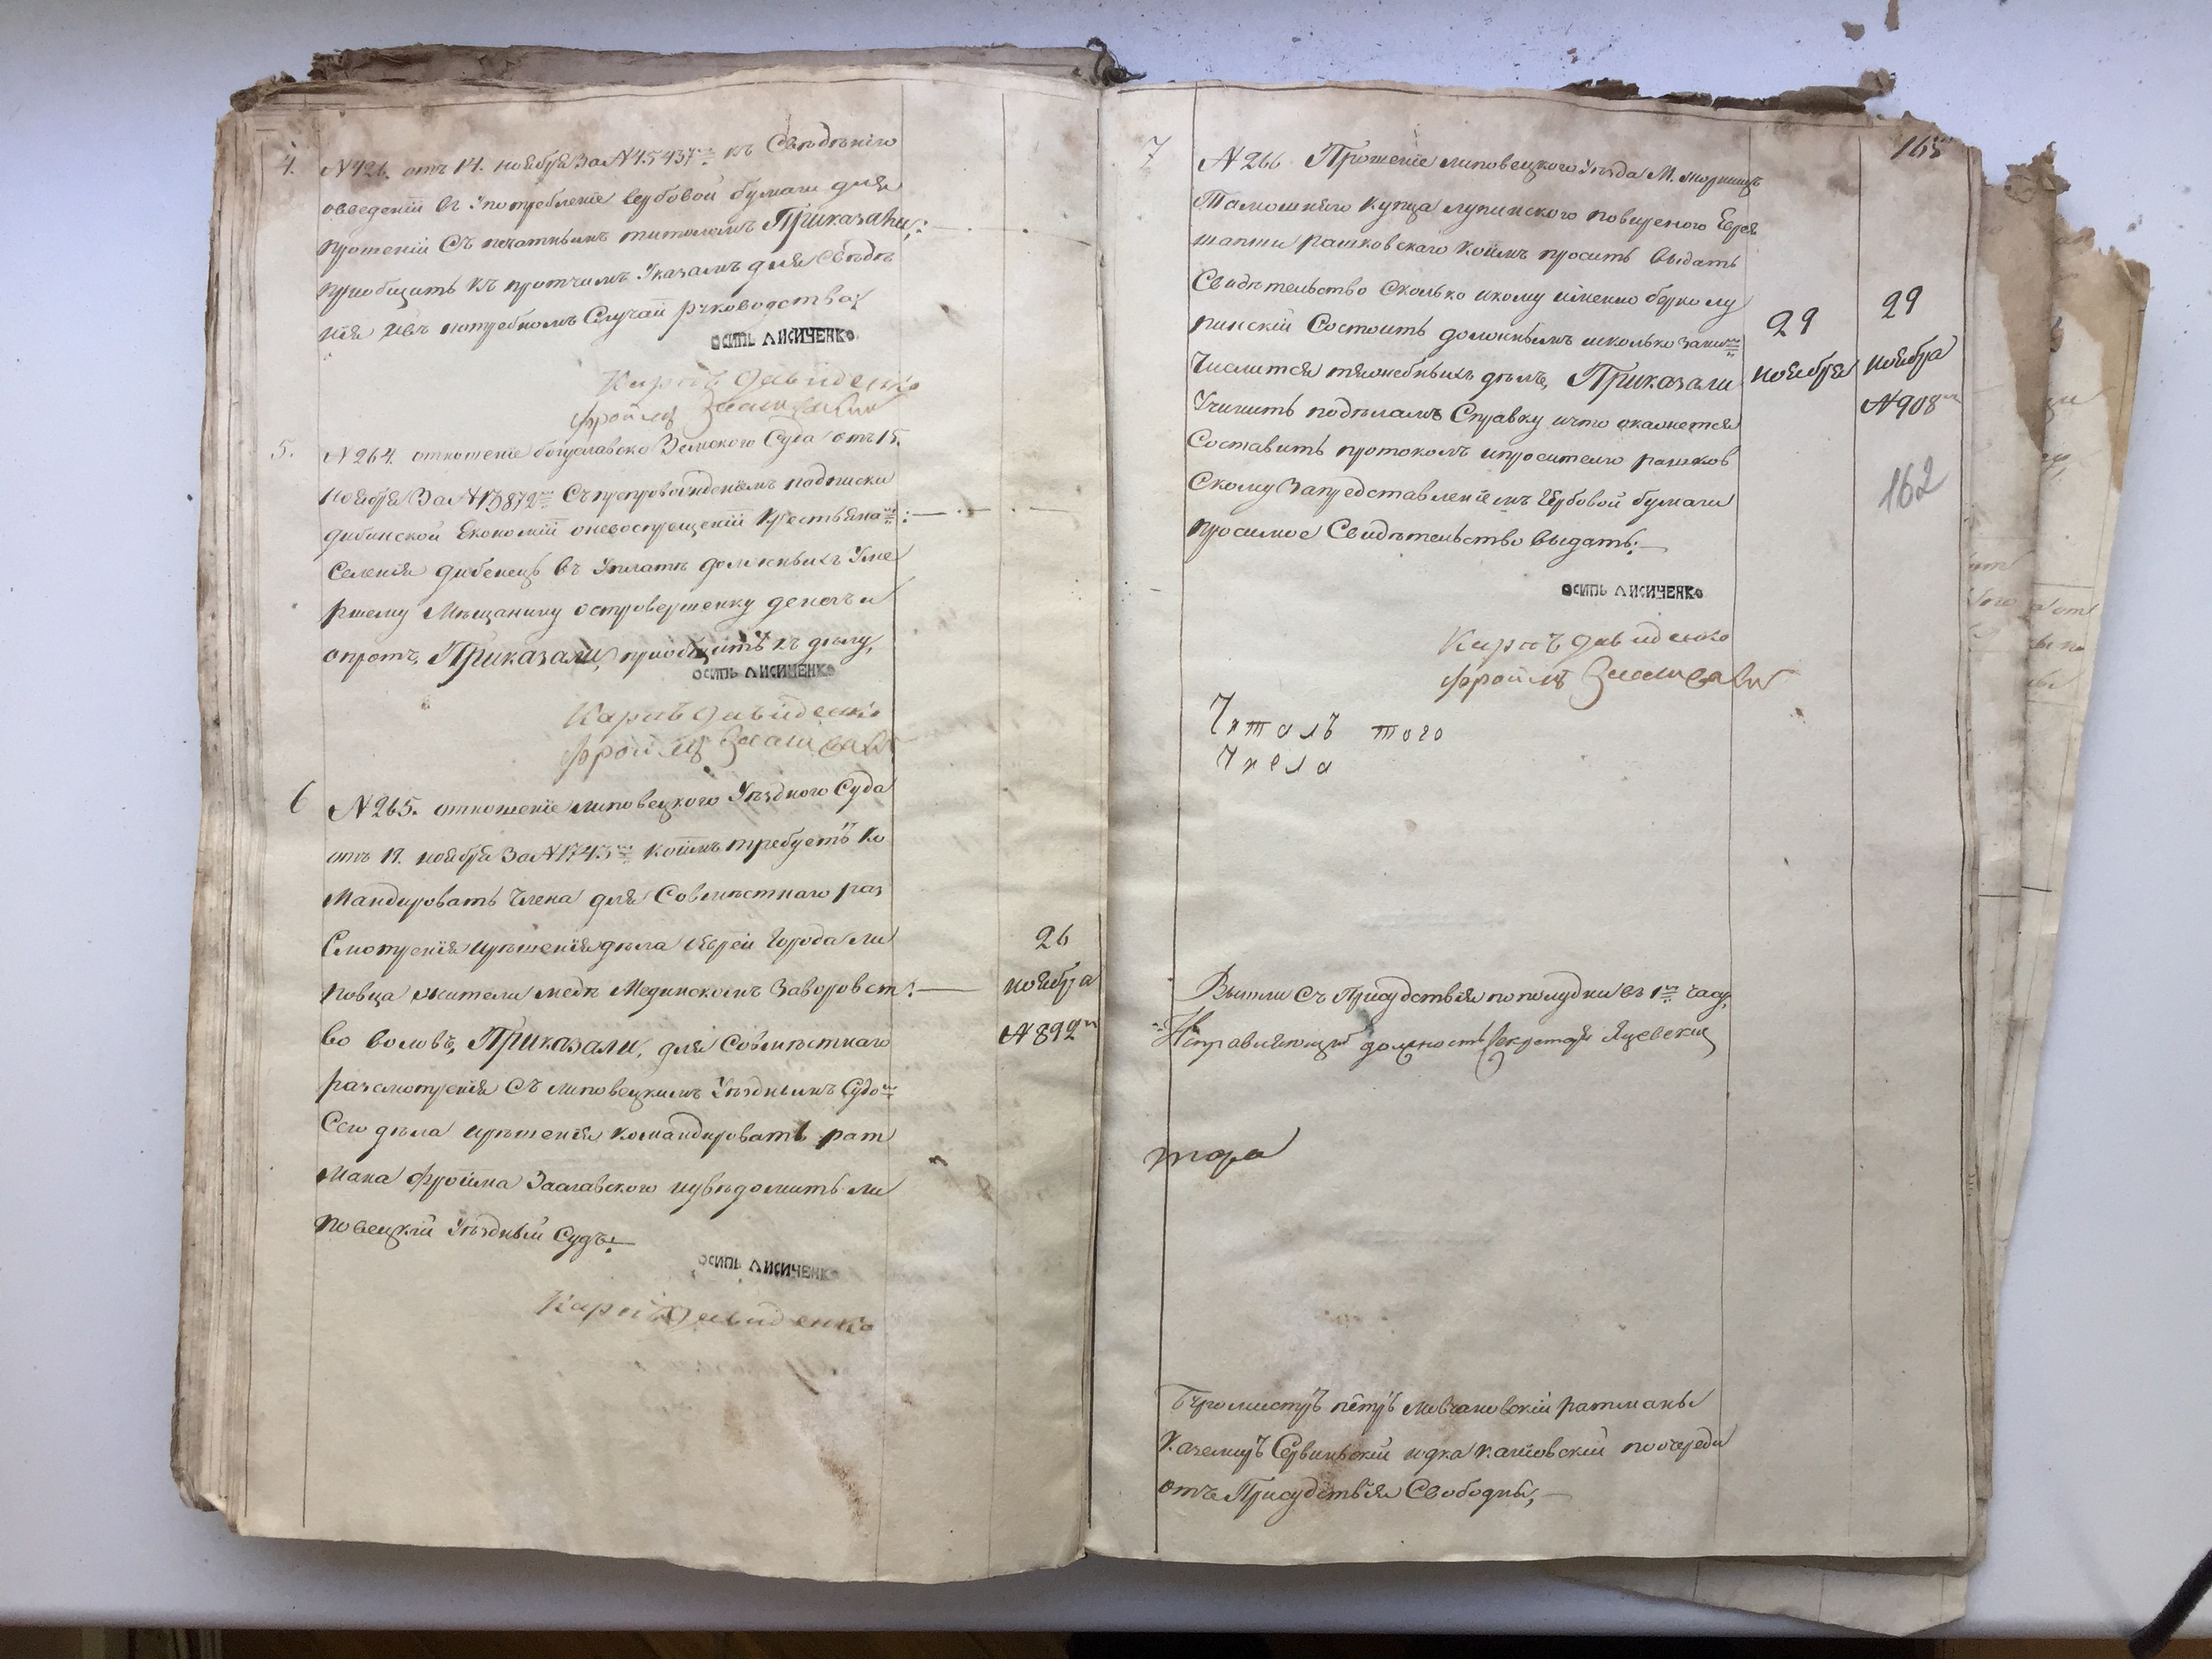 4.
N 426. отъ 14. ноября За N 45437мъ къ Сведенію
овведеніи въ употребленіе гербовой бумаги для
прошеній Съ печатнымъ титоломъ Приказали;
приобщить къ протчимъ Указамъ для Сведе
нія ивъ потребномъ Случаи руководства;
ОСИПЬ ЛИСИЧЕНКО
Карпъ Давиденко
Фроимъ Заславскій
5.
N 264. отношеніе богуславско Земского Суда отъ 15.
ноября За N 13872мъ Съ препровожденіемъ подписки
дибинской Економіи оневоспрещеніи Крестьяна
Селенія дибенецъ въ Уплатѣ должныхъ Уме
ршему Мѣщанину островершенку денегъ и
опротч, Приказали, приобщить къ дѣлу,
ОСИПЬ ЛИСИЧЕНКО
Карпъ Давиденко
Фроимъ Заславскій
6
N 265. отношеніе липовецкого Уѣздного Суда
отъ 19. ноября За N 1743мъ коимъ требуетъ Ко
мандировать Члена для Совмѣстнаго раз
Смотренія ирѣшенія дѣла оЕврей Города ли
повца жители Мединскомъ Заворовст
во воловъ, Приказали, для Совмѣстнаго
разсмотренія Съ липовецкимъ Уѣзднымъ Судо
Сего дѣла ирѣшенія командировать рат
мана фроима Заславского иувѣдомить ли
повецкій Уѣздный Судъ;
26
ноября
N 892
ОСИПЬ ЛИСИЧЕНКО
Карпъ Давиденко
165
7
N 266 Прошеніе липовецкого Уѣзда М.
Тамошняго купца лупинского повереного Еврея
рашковскаго коимъ просить выдать
Свидѣтельство Сколько икому именно берко лу
пинскій Состоитъ должнымъ исколько заним
Числится тяжебныхъ дѣлъ, Приказали
Учинить подѣламъ Справку ичто окажется
Составить протоколъ ипросителю рашков
Скому Запредставленіемъ Гербовой бумаги
просимое Свидѣтельство выдать;
29
ноября
29
ноября
N 908
162
ОСИПЬ ЛИСИЧЕНКО
Карпъ Давиденко
Фроимъ Заславскій
Читалъ того
Числа
Вышли Съ Присудствія пополудни въ 1м часу,
Исправляющій должность Секретаря Яцевскій
тора
Бургомистръ пётръ Мовчановскій ратманы
Каземиръ Сервинскій июдка Каневскій поочереди
отъ Присудствія Свободны,